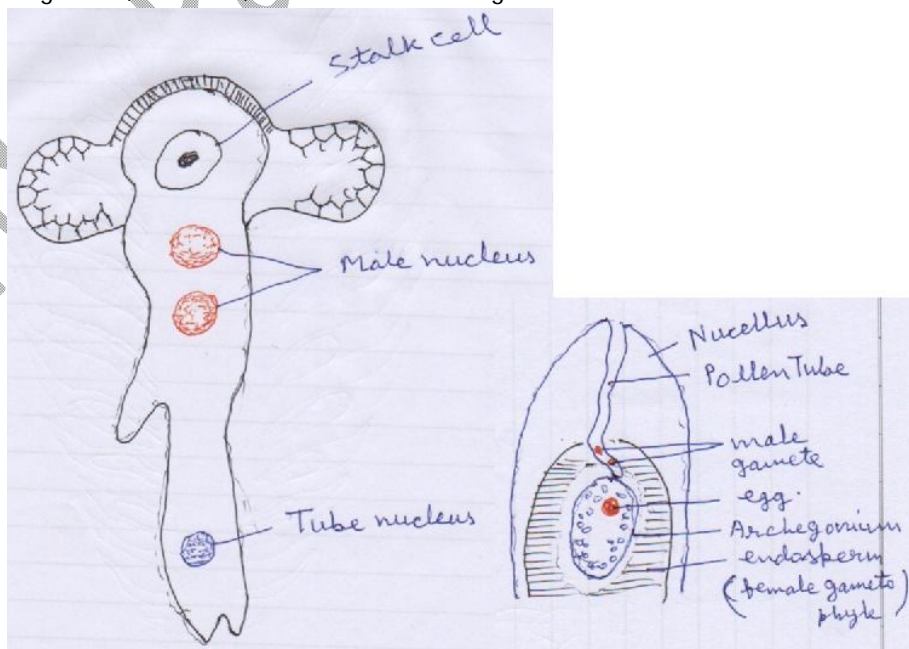 Stalk cell
Male nucleus
Tube nucleus
Nucellus
Pollen Tube
male
gamete
egg.
Archegonium
endosperm
(female gameto
phyte)